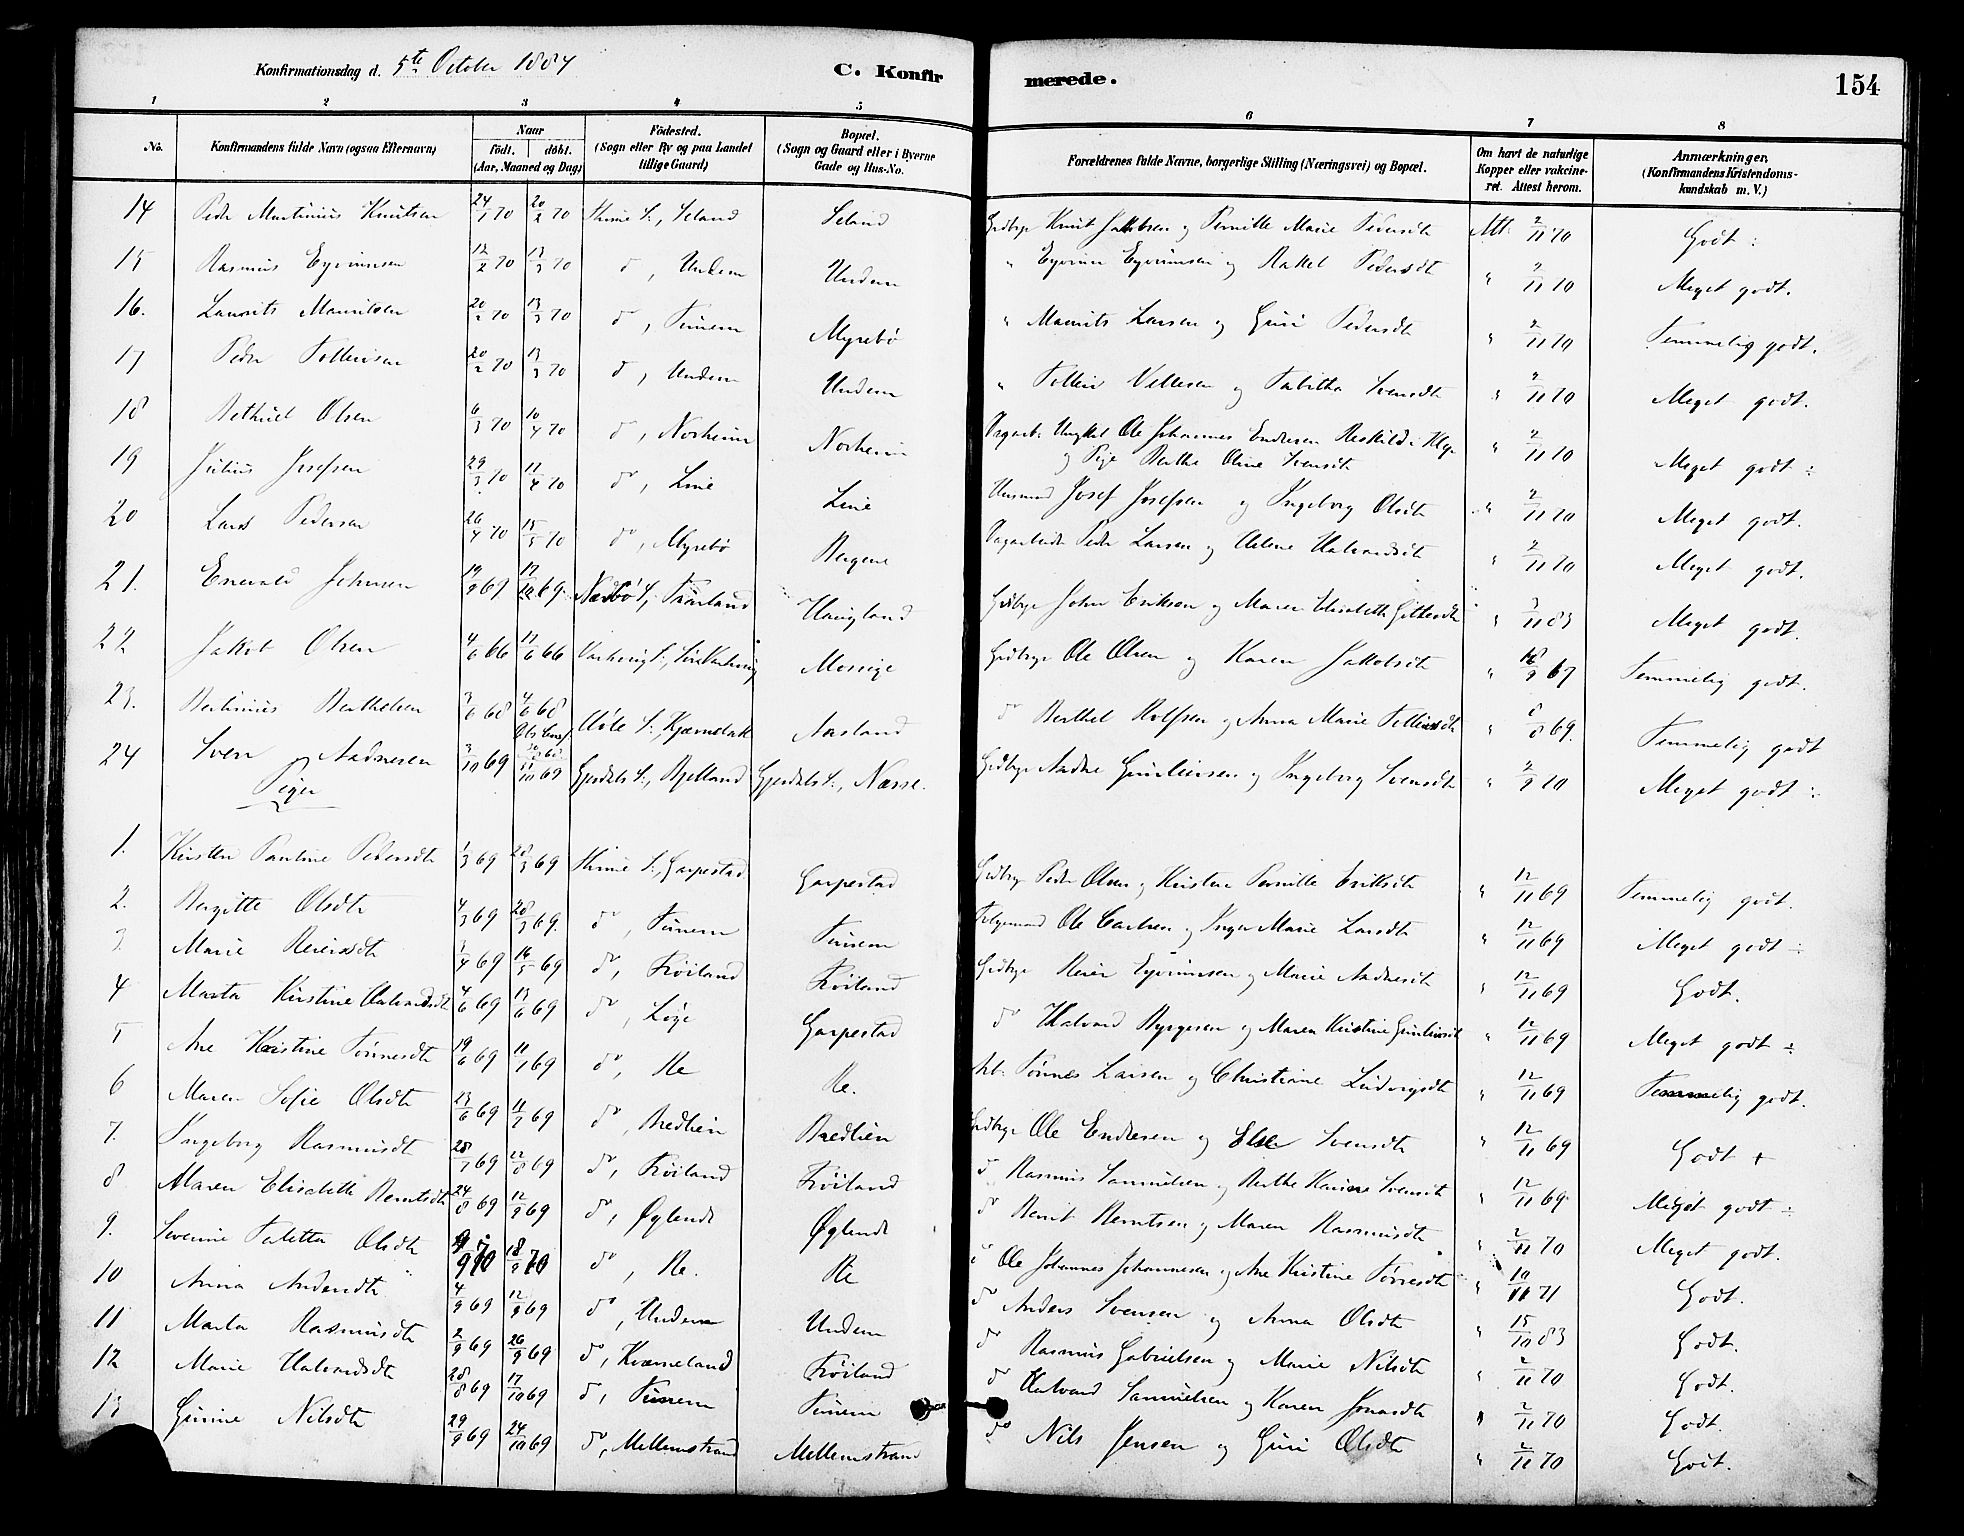 Konfirmationsdag d. 5te October 1884 C. Konfirmerede. 154
1 2 3 4 5 6 7 8
No. Konfirmandens fulde Navn (ogsaa Efternavn) Naar født. døbt. (Aar, Maaned og Dag) Fødested. (Sogn eller By og paa Landet tillige Gaard) Bopæl. (Sogn og Gaard eller i Byerne Gade og Hus-No. Forældrenes fulde Navne, borgerlige Stilling (Næringsvei) og Bopæl. Om havt de naturlige Kopper eller vakcineret. Attest herom. Anmærkninger, (Konfirmandens Kristendomskundskab m. V.)
14 Peder Martinius Knutsen 24/1 70 20/2 70 Thime S., Seland Seland Grdbrgr Knut Jakobsen og Pernille Marie Pedersdt Att. 2/11 70 Godt ÷
15 Rasmus Eyvinnsen 12/2 70 13/3 70 do, Undem Undem " Eyvinn Eyvinnsen og Rakel Pedersdt " 2/11 70 Meget godt.
16. Laurits Mauritsen 20/2 70 13/3 70 do, Tunem Myrebø " Maurits Larsen og Guri Pedersdt " 2/11 70 Temmelig godt.
17 Peder Tollevsen 20/2 70 13/3 70 do, Undem Undem " Tollev Villesen og Tabitha Svensdt " 2/11 70 Meget godt.
18 Bethuel Olsen 6/3 70 10/4 70 do, Norheim Norheim Ungkl Ole Johannes Endresen i Klep og Pige Berthe Oline Svensdt " 2/11 70 Meget godt ÷
19 Julius Josefsen 29/3 70 11/4 70 do, Line Line Husmand Josef Josefsen og Ingeborg Olsdt " 2/11 70 Meget godt.
20 Lars Pedersen 26/4 70 15/5 70 do, Myrebø Bergene Dagarbeider Peder Larsen og Helene Halvardsdt " 2/11 70 Meget godt.
21. Enevald Johnsen 19/9 69 17/10 69 Nærbø S., Taarland Haugland Grdbrgr John Eriksen og Maren Elisabeth Gitlesdt " 3/11 83 Meget godt.
22 Jakob Olsen 4/6 66 17/6 66 Varhoug S., Mossige Grdbrgr Ole Olsen og Karen Jakobsdt " 18/9 67 Temmelig godt.
23. Berthinius Berthelsen 3/6 68 4/6 68 Høle S., Aasland do Berthel Rolfsen og Anna Marie Tollevsdt " 8/8 69. Temmelig godt
24 Sven Aadnesen 3/10 69 17/10 69 Gjesdals S., Bjelland Gjesdals S., Næsse. Grdbrgr Aadne Gunleivsen og Ingeborg Svensdt " 2/9 70 Meget godt ÷
Piger
1. Kirsten Pauline Pedersdt 1/3 69 28/3 69 Thime S., Garpestad Garpestad Grdbrgr Peder Olsen og Kirsten Pernille Eriksdt " 12/11 69 Temmelig godt.
2. Bergitte Olsdt 4/3 69 28/3 69. do, Tunem Tunem Ole Carlsen og Inger Marie Larsdt " 12/11 69 Meget godt ÷
3. Marie Reiersdt 3/4 69 16/5 69 do, Frøiland Frøiland Grdbrgr Reier Eyvinnsen og Marie Aadnesdt " 12/11 69 Godt.
4 Marta Kirstine Halvardsdt 4/6 69 13/6 69 do, Løge Garpestad do Halvard Byrgesen og Maren Kristine Gunleivsdt " 12/11 69 Meget godt ÷
5 Ane Kristine Tønnesdt 19/6 69 11/7 69 do, Re Re. Arb. Tønnes Larsen og Christiane Ludvigsdt " 12/11 69 Temmelig godt.
6 Maren Sofie Olsdt 13/6 69 11/7 69 do, Bredlien Bredlien Grdbrgr Ole Endresen og Else Svensdt " 12/11 69 Godt +
7. Ingeborg Rasmusdt 28/7 69 22/8 69 do, Frøiland Frøiland do Rasmus Samuelsen og Berthe Karine Svensdt " 12/11 69. Meget godt ÷
8 Maren Elisabeth Berntsdt 24/8 69 12/9 69 do, Øglende Øglende do Bernt Berntsen og Maren Rasmusdt " 2/11 70 Meget godt.
9. Severine Taletta Olsdt 9/9 70 18/9 70 do, Re. Re do Ole Johannes Johannesen og Ane Kristine Torresdt " 10/11 71 Godt.
10 Anna Andersdt 4/9 69 12/9 69 do, Undem Undem do Anders Svensen og Anna Olsdt " 15/10 83 Godt.
11 Marta Rasmusdt 2/9 69 26/9 69 do, Kværneland Frøiland do Rasmus Gabrielsen og Marie Nilsdt " 2/11 70 Godt.
12 Marie Halvardsdt 28/8 69 17/10 69 do, Tunem Tunem do Halvard Samuelsen og Karen Jonasdt " 2/11 70 Godt.
13 Gurine Nilsdt 29/9 69 24/10 69 do, Mellemstrand Mellemstrand do Nils Jensen og Guri Olsdt " 2/11 70 Godt.